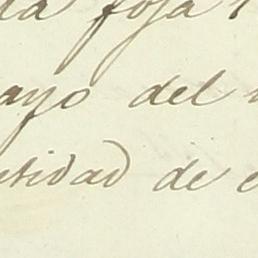 la foja 1
ayo del
ntidad de e